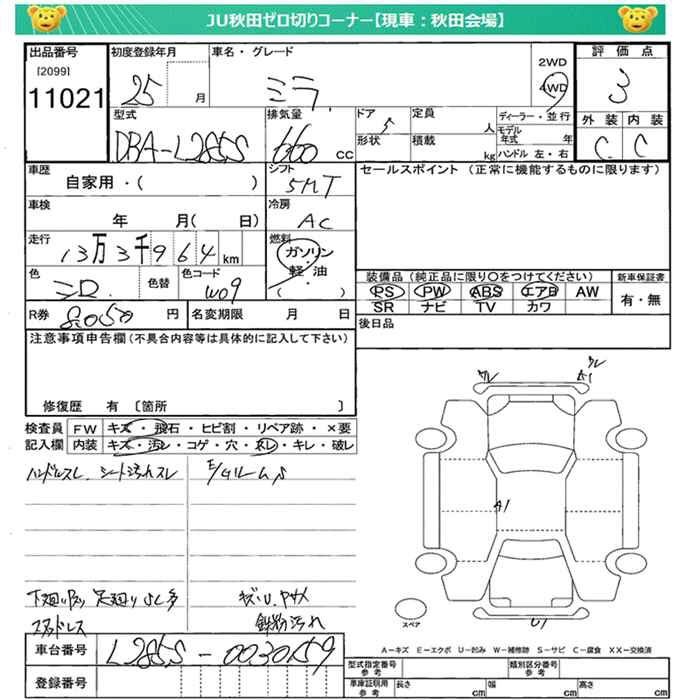 JU秋田ゼロ切りコーナー【現車：秋田会場】
出品番号
[2099]
11021
初度登録年月
25
月
車名・グレード
ミラ
2WD
4WD
評価点
3
型式
DBA-L285S
排気量
660 cc
ドア
5
形状
定員
人
積載
kg
ディーラー・並行
モデル年式
年
ハンドル 左・右
外装
内装
C
C
車歴
自家用・(　　)
シフト
5MT
セールスポイント（正常に機能するものに限ります）
車検
年　月(　日)
冷房
AC
走行
13万3千964km
燃料
ガソリン
・
軽 油
色
色替
色コード
W09
装備品（純正品に限り○をつけてください）
新車保証書
PS PW ABS エアB AW
有・無
SR ナビ TV カワ
R券
8,050
円
名変期限
月　日
後日品
注意事項申告欄（不具合内容等は具体的に記入して下さい）
修復歴　有〔箇所　　〕
検査員
記入欄
FW
キズ・飛石・ヒビ割・リペア跡・×要
内装
キズ・汚レ・コゲ・穴・スレ・キレ・破レ
ハンドルスレ、シート汚れスレ
A1
A1
U1
下廻り
足廻り
キズ・U
スタッドレス
鉄粉汚れ
スペア
A－キズ　E－エクボ　U－凹み　W－補修跡　S－サビ　C－腐食　XX－交換済
車台番号
L285S-0030159
登録番号
型式指定番号
参考
類別区分番号
参考
車庫証明用
参考
長さ
cm
幅
cm
高さ
cm